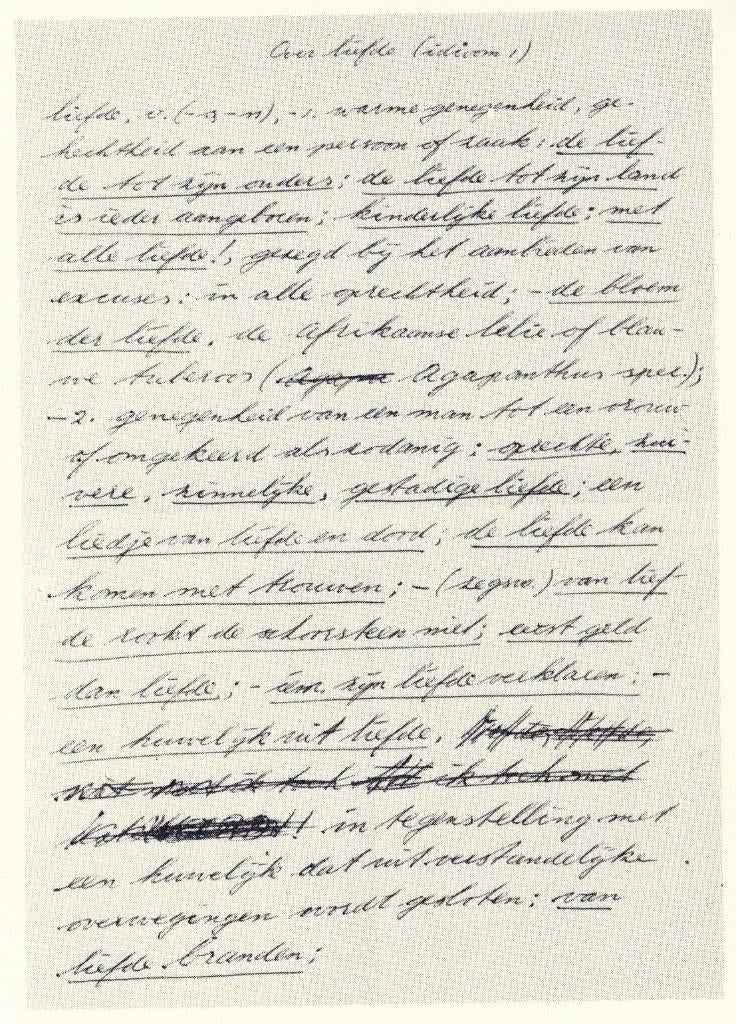 Over liefde (idioom 1)
liefde, v. (-s, -n), -1. warme genegenheid, ge-
hechtheid aan een persoon of zaak: de lief-
de tot zijn ouders; de liefde tot zijn land
is ieder aangeboren; kinderlijke liefde; met
alle liefde!, gezegd bij het aanbieden van
excuses: in alle oprechtheid; - de bloem
der liefde, de Afrikaanse lelie of blau-
we tuberoos (Agapa Agapanthus spec.);
-2. genegenheid van een man tot een vrouw
of omgekeerd als zodanig: oprechte, zui-
vere, zinnelijke, gestadige liefde; een
liedje van liefde en dood; de liefde kan
komen met trouwen; - (zegsw.) van lief-
de rookt de schoorsteen niet; eerst geld
dan liefde; - iem. zijn liefde verklaren; -
een huwelijk uit liefde,
! in tegenstelling met
een huwelijk dat uit verstandelijke
overwegingen wordt gesloten; van
liefde branden;